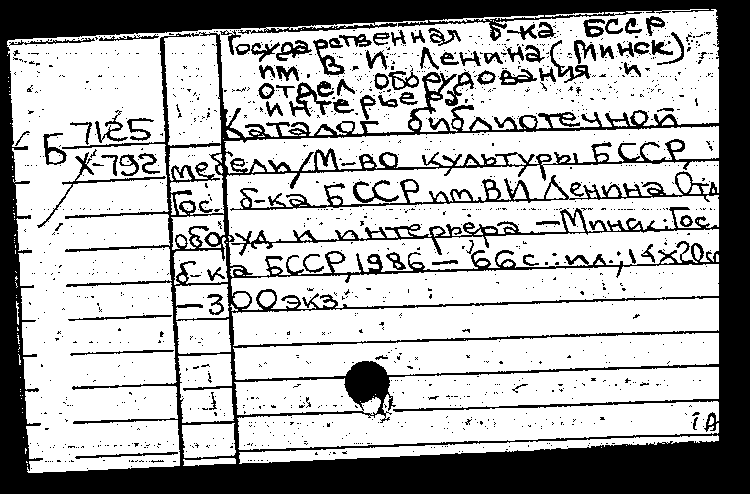 Государственная б-ка БССР
им. В. И. Ленина (Минск)
отдел оборудования и
интерьера
Каталог библиотечной
Б 7125
Х-792
мебели/М-во культуры БССР,
Гос. б-ка БССР им. ВИ Ленина Отд
оборуд. и интерьера —Минск: Гос.
б-ка БССР, 1986 — 66 с.: ил.; 14х20см
—300 экз.
1А